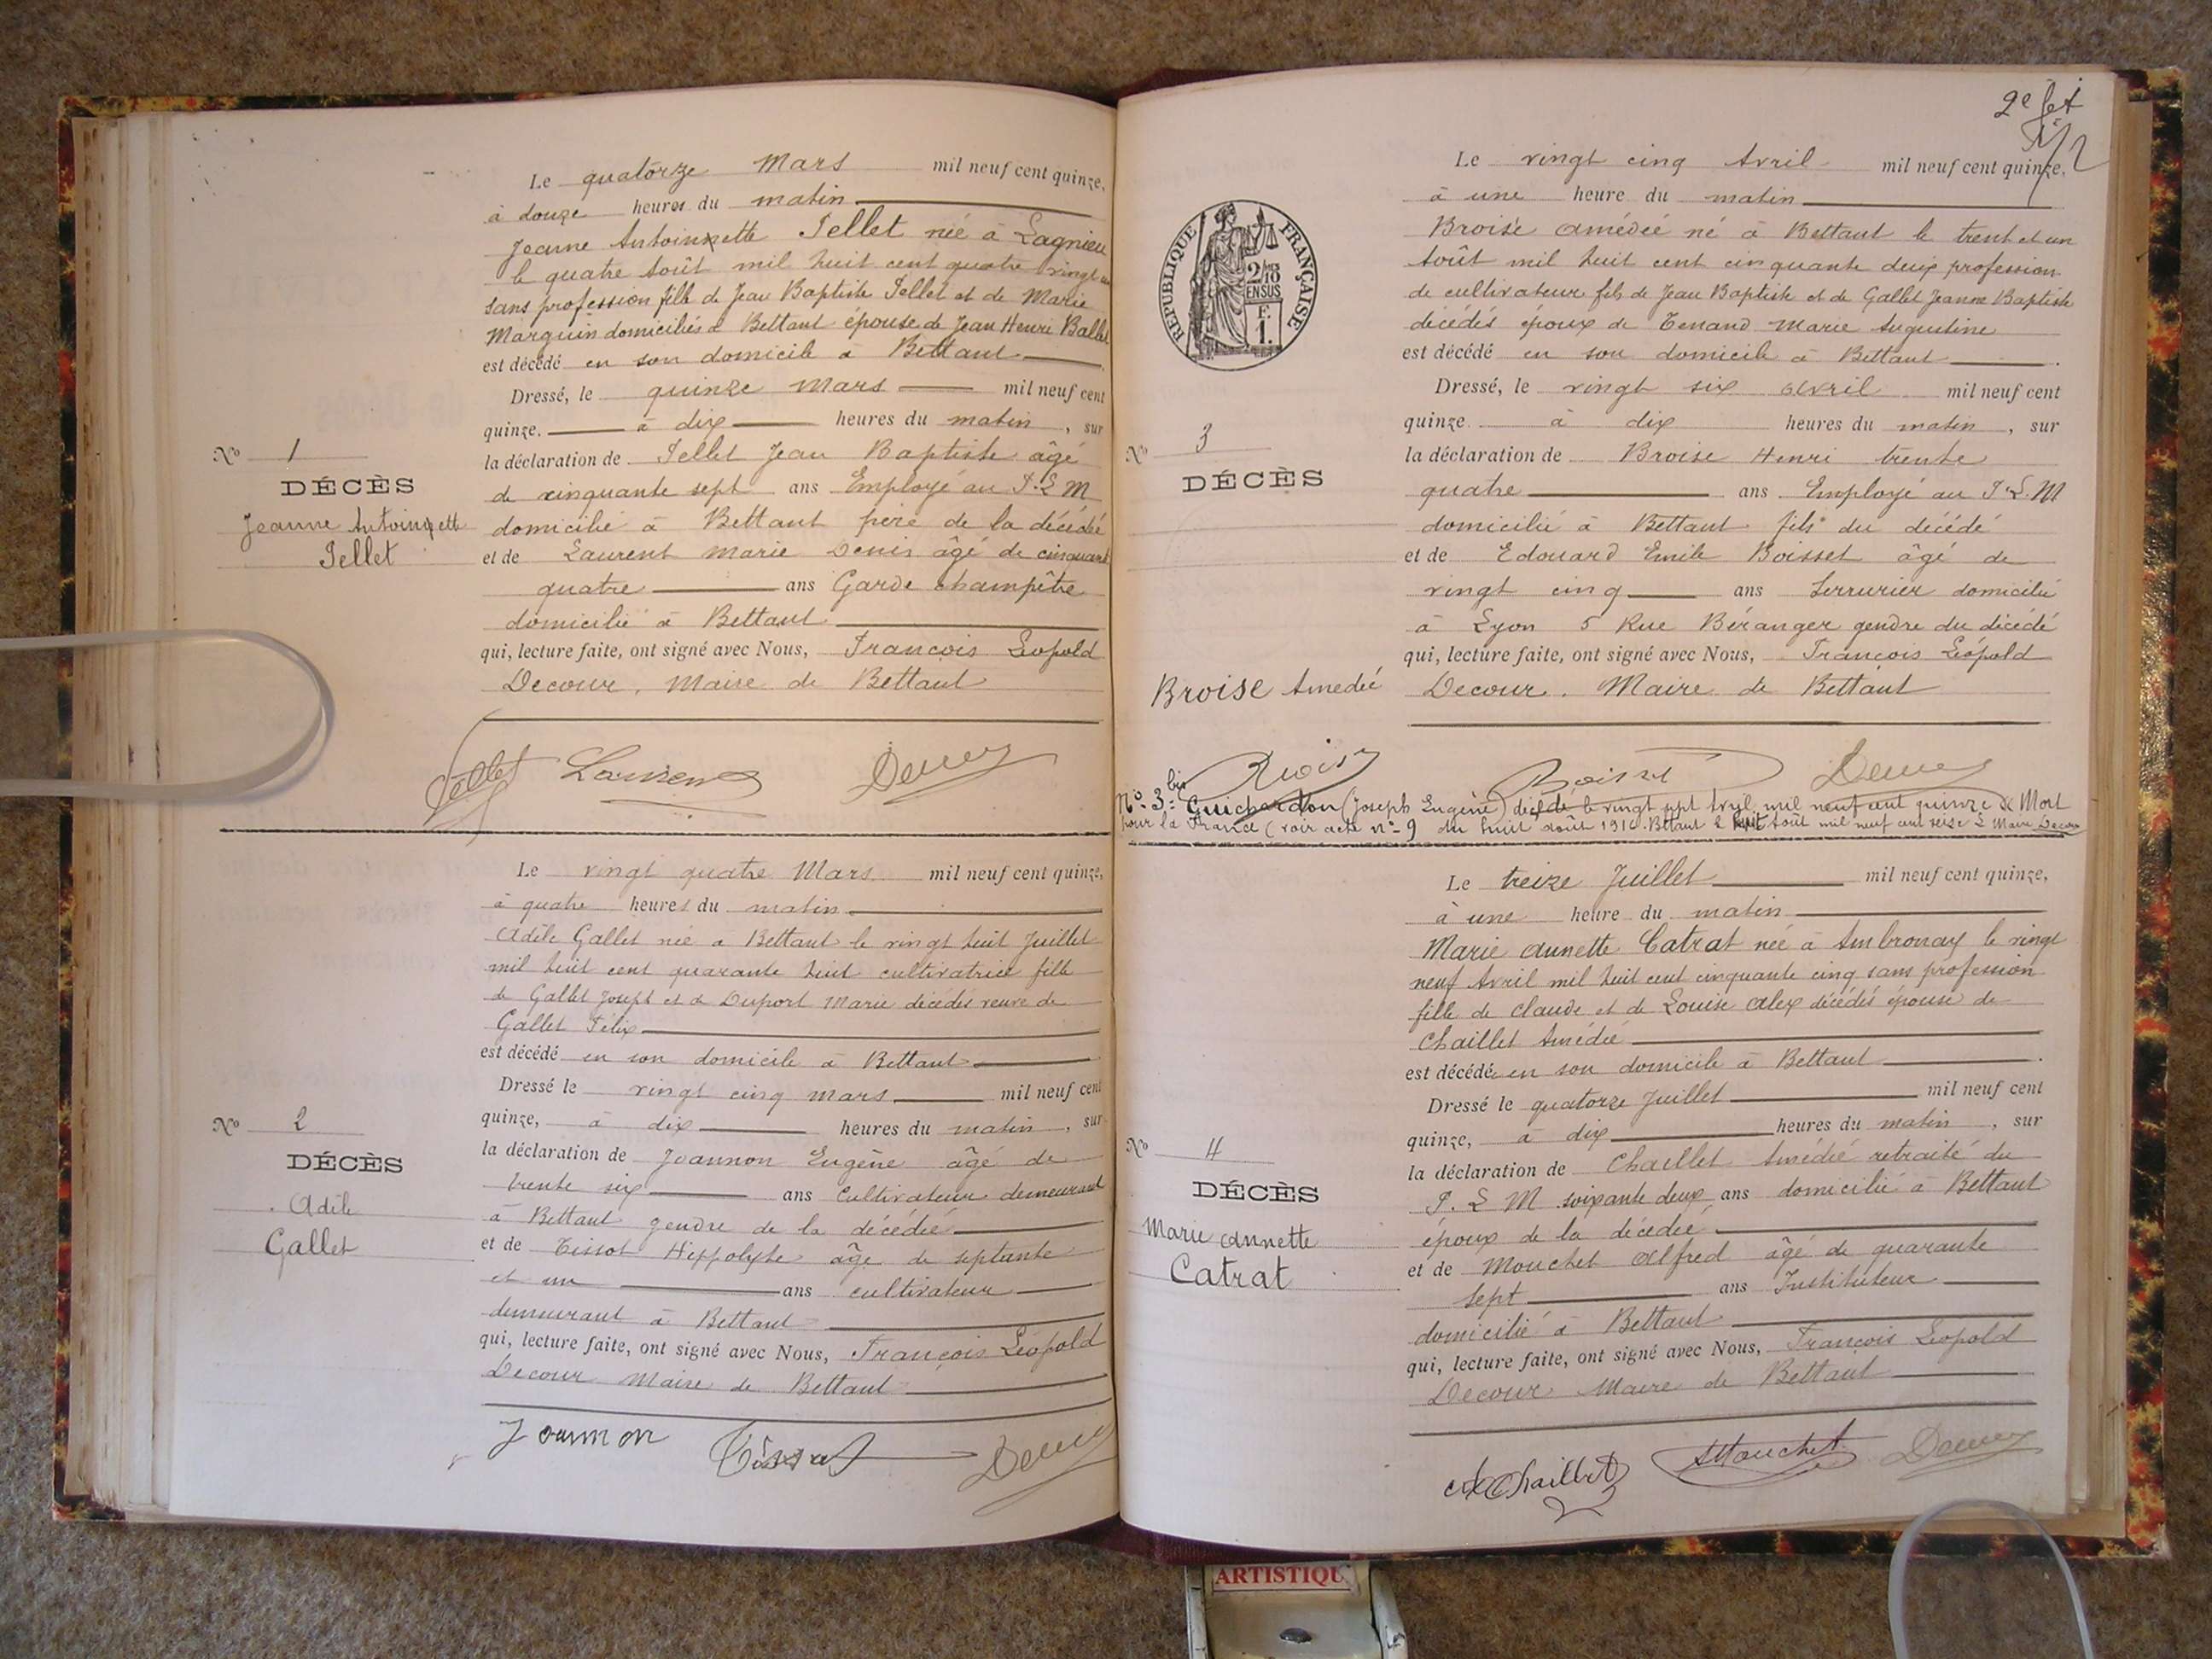 Le quatorze Mars mil neuf cent quinze,
à douze heures du matin
Jeanne Antoinette Pellet née à Lagnieu
le quatre Août mil huit cent quatre vingt un
sans profession fille de Jean Baptiste Pellet et de Marie
Marguin domiciliés à Bettant épouse de Jean Henri Ballet
est décédé en son domicile à Bettant
Dressé, le quinze Mars mil neuf cent
quinze. à dix heures du matin, sur
la déclaration de Pellet Jean Baptiste âgé
de cinquante sept ans Employé au P.L.M
domicilié à Bettant père de la décédée
et de Laurent Marie Denis âgé de cinquante
quatre ans Garde champêtre
domicilié à Bettant
qui, lecture faite, ont signé avec Nous, François Léopold
Decour, Maire de Bettant
No 1
DÉCÈS
Jeanne Antoinette
Pellet
Pellet Laurent Decour
Le vingt quatre Mars mil neuf cent quinze,
à quatre heures du matin
Adèle Gallet née à Bettant le vingt huit Juillet
mil huit cent quarante huit cultivatrice fille
de Gallet Joseph et de Duport Marie décédés veuve de
Gallet Félix
est décédé en son domicile à Bettant
Dressé le vingt cinq mars mil neuf cent
quinze, à dix heures du matin, sur
la déclaration de Joannon Eugène âgé de
trente six ans Cultivateur demeurant
à Bettant gendre de la décédée
et de Tissot Hippolyte âgé de septante
et un ans cultivateur
demeurant à Bettant
qui, lecture faite, ont signé avec Nous, François Léopold
Decour Maire de Bettant
No 2
DÉCÈS
Adèle
Gallet
Joannon Tissot Decour
2e fet
RÉPUBLIQUE FRANÇAISE
2/10
EN SUS
F.
1.
Le vingt cinq Avril mil neuf cent quinze.
à une heure du matin
Broise Amédée né à Bettant le trent et un
Août mil huit cent cinquante deux profession
de cultivateur fils de Jean Baptiste et de Gallet Jeanne Baptiste
décédés époux de Tenand Marie Augustine
est décédé en son domicile à Bettant
Dressé, le vingt six Avril mil neuf cent
quinze. à dix heures du matin, sur
la déclaration de Broise Henri trente
quatre ans Employé au P.L.M
domicilié à Bettant fils du décédé
et de Edouard Emile Boisset âgé de
vingt cinq ans Serrurier domicilié
à Lyon 5 Rue Béranger gendre du décédé
qui, lecture faite, ont signé avec Nous, François Léopold
Decour. Maire de Bettant
No 3
DÉCÈS
Broise Amedée
Broise Boisset Decour
No 3 bis Guichardon (Joseph Eugène) décédé le vingt sept Avril mil neuf cent quinze Mort
pour la France (voir acte no 9 du huit août 1916. Bettant le huit Août mil neuf cent seize Le Maire Decour
Le treize Juillet mil neuf cent quinze,
à une heure du matin
Marie Annette Catrat née à Ambronay le vingt
neuf Avril mil huit cent cinquante cinq sans profession
fille de Claude et de Louise Alex décédés épouse de
Chaillet Amédée
est décédée en son domicile à Bettant
Dressé le quatorze Juillet mil neuf cent
quinze, à dix heures du matin, sur
la déclaration de Chaillet Amédée retraité du
P.L M soixante deux ans domicilié à Bettant
époux de la décédée
et de Mouchet Alfred âgé de quarante
sept ans Instituteur
domicilié à Bettant
qui, lecture faite, ont signé avec Nous, François Léopold
Decour Maire de Bettant
No 4
DÉCÈS
Marie Annette
Catrat
A Chaillet AMouchet Decour
ARTISTIQU